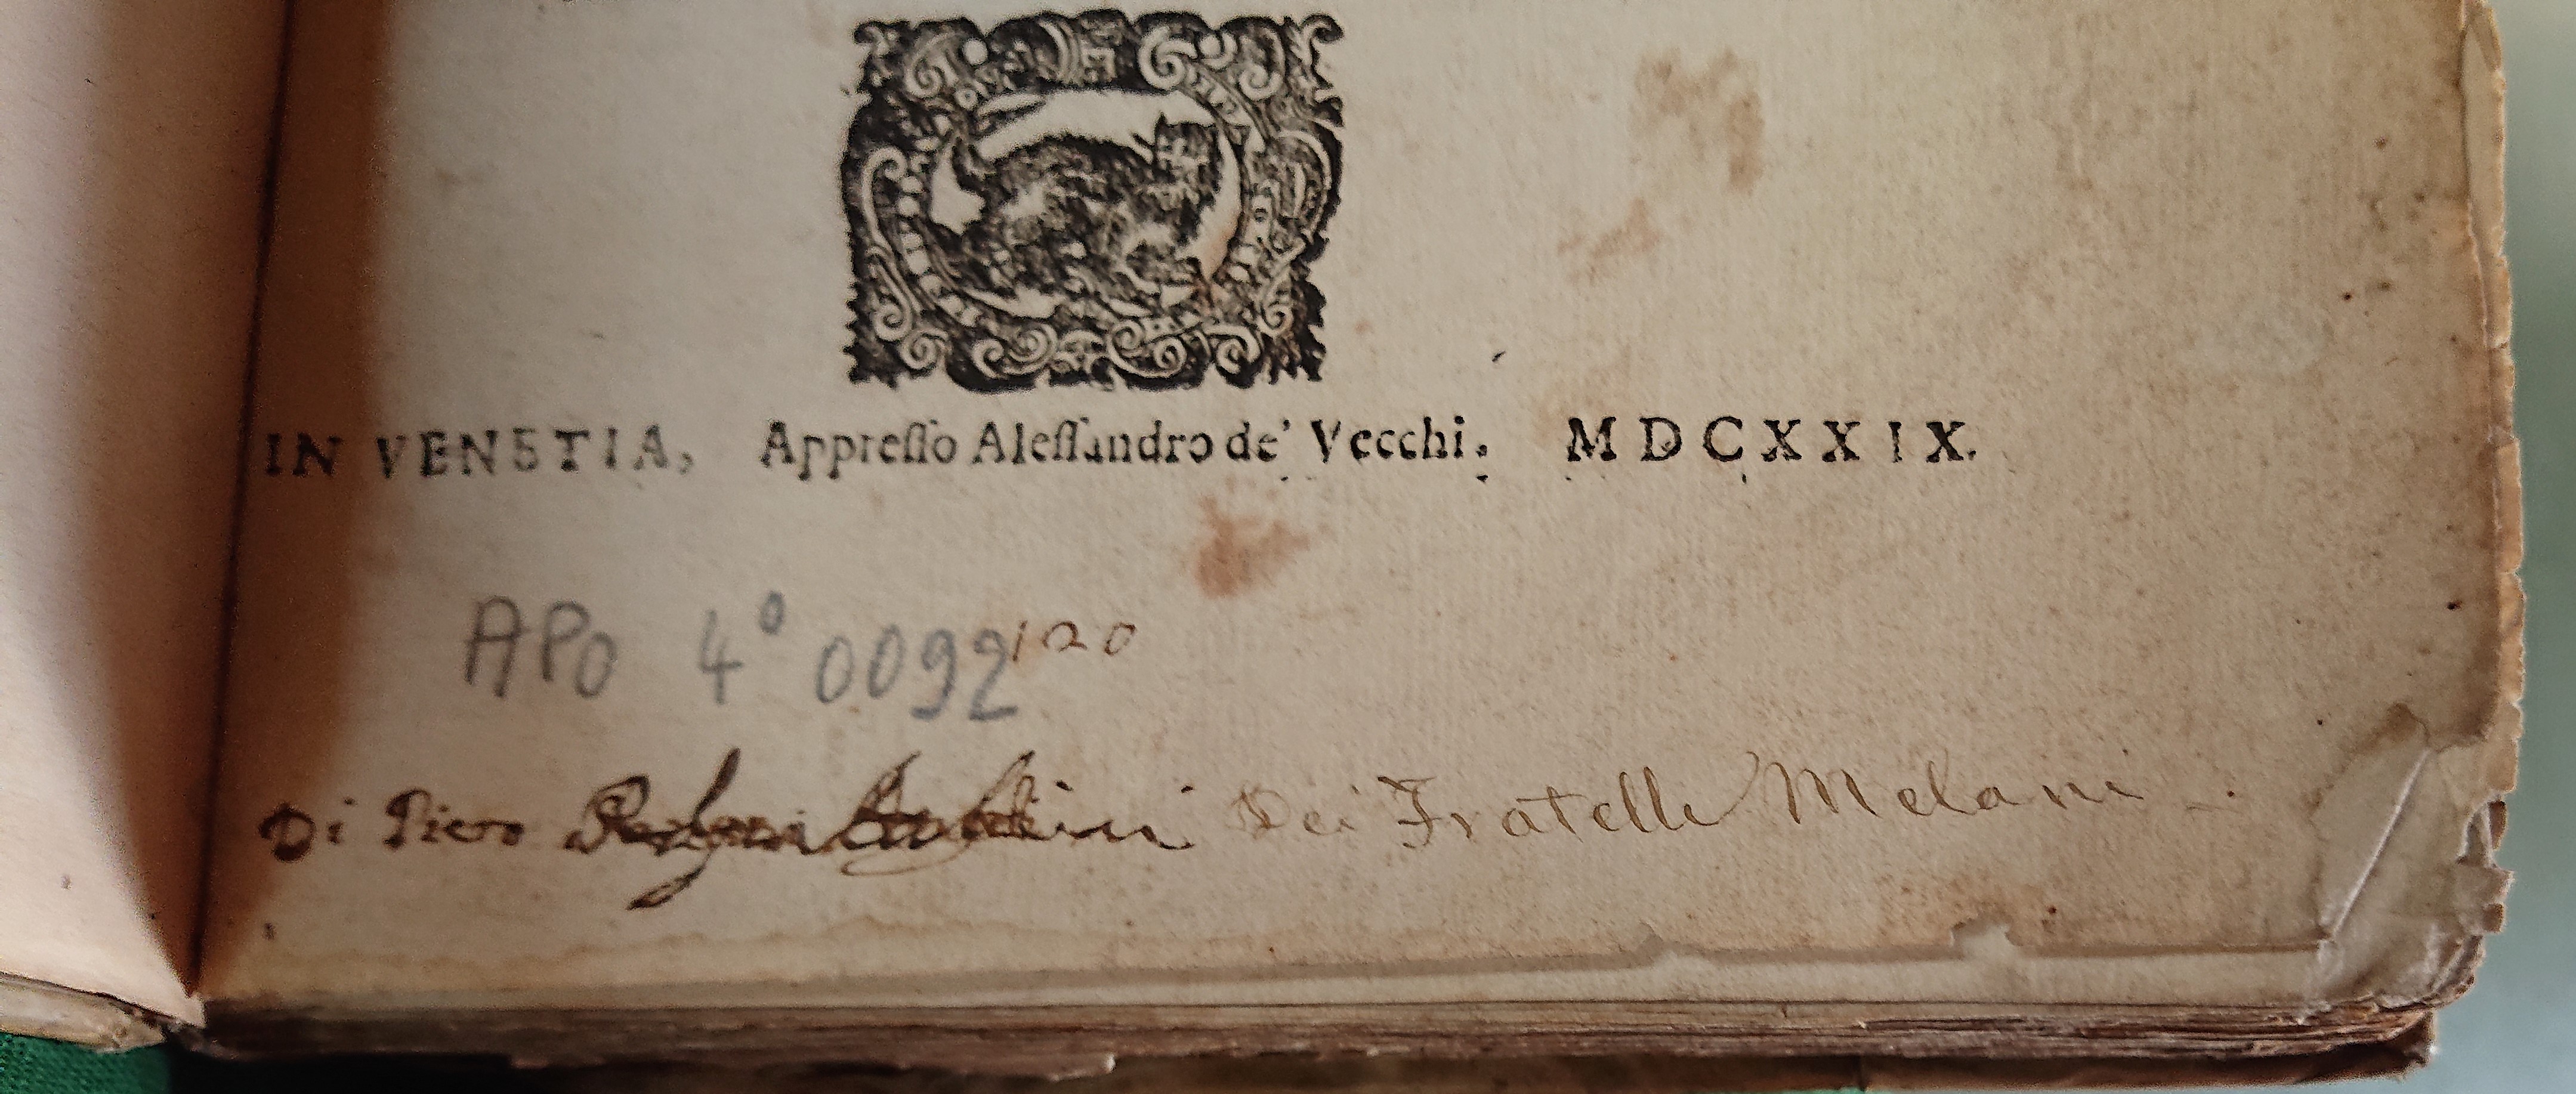 IN VENETIA, Appreſſo Aleſſandro de' Vecchi. MDCXXIX.
APO 4º 0092 120
Di Piero Dei Fratelli Melani